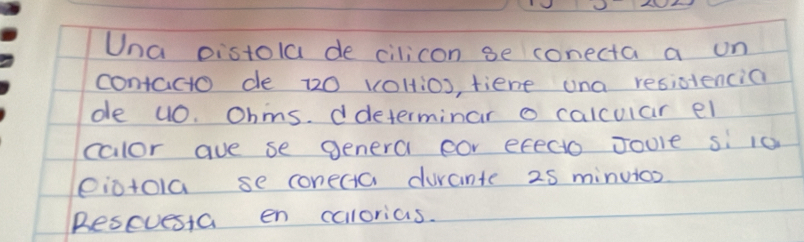 Una pistola de cilicon se conecta a un
contacto de 120 voltios, tiene una resistencia
de 40. Ohms. d determinar o calcular el
calor que se genera por efecto Joule si la
pistola se conecta durante 25 minutos
Respuesta en calorias.